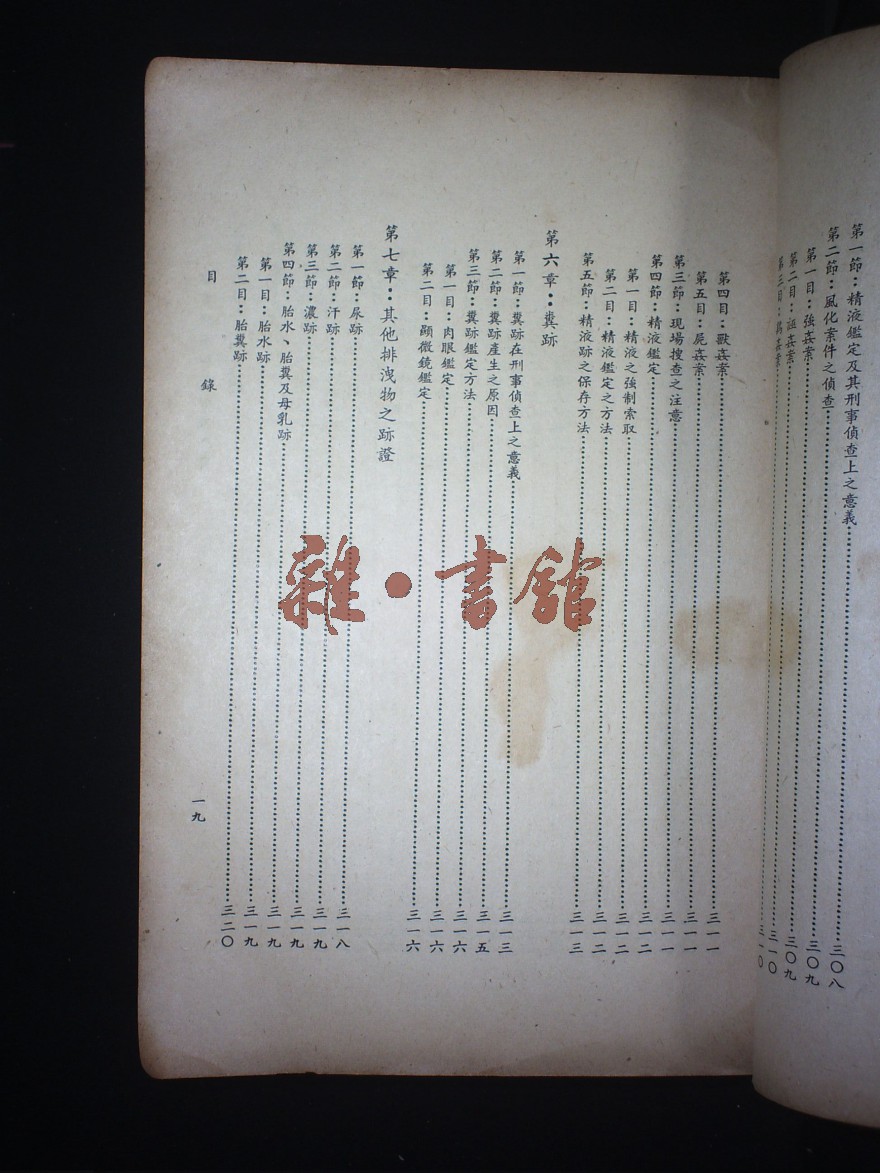 第一節：精液鑑定及其刑事偵查上之意義……三〇八
第二節：風化案件之偵查……三〇九
第一目：強姦案……三〇九
第二目：誣姦案……三一〇
第三目：
姦案……三一〇
第四目：獸姦案……三一一
第五目：屍姦案……三一一
第三節：現場搜查之注意……三一一
第四節：精液鑑定……三一二
第一目：精液之強制索取……三一二
第二目：精液鑑定之方法……三一二
第五節：精液跡之保存方法……三一三
第六章：糞跡
第一節：糞跡在刑事偵查上之意義……三一三
第二節：糞跡產生之原因……三一五
第三節：糞跡鑑定方法……三一六
第一目：肉眼鑑定……三一六
第二目：顯微鏡鑑定……三一六
第七章：其他排洩物之跡證
第一節：尿跡……三一八
第二節：汗跡……三一九
第三節：濃跡……三一九
第四節：胎水、胎糞及母乳跡……三一九
第一目：胎水跡……三一九
第二目：胎糞跡……三二〇
目錄
一九
雜·書館